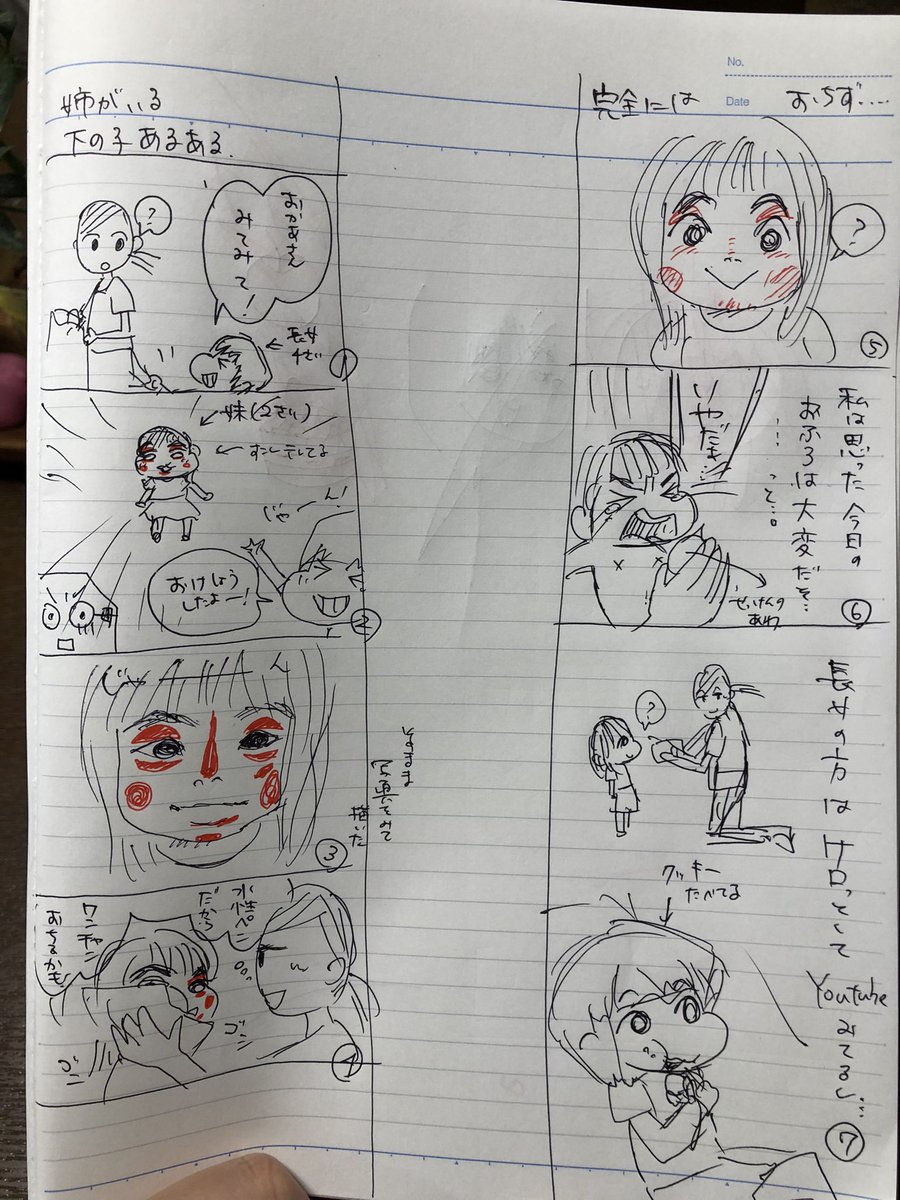 姉がいる
下の子あるある.
?
おかあさん
みてみて!
長女
4さい
1
妹(2さい)
じゃーん!
おけしょう
したよー!
2
じゃーん
写真をみて
描いた
3
水性ペン
だから
ワンチャン
おちるかも
ゴシ
ゴシ
4
No.
Date
完全には おちず....
?
5
私は思った 今日の
おふろは大変だぞ…
…って…。
いやだま
せっけんの
あわ
6
長女の方はケロッとして
Youtubeみてるし…
?
クッキー
たべてる
7